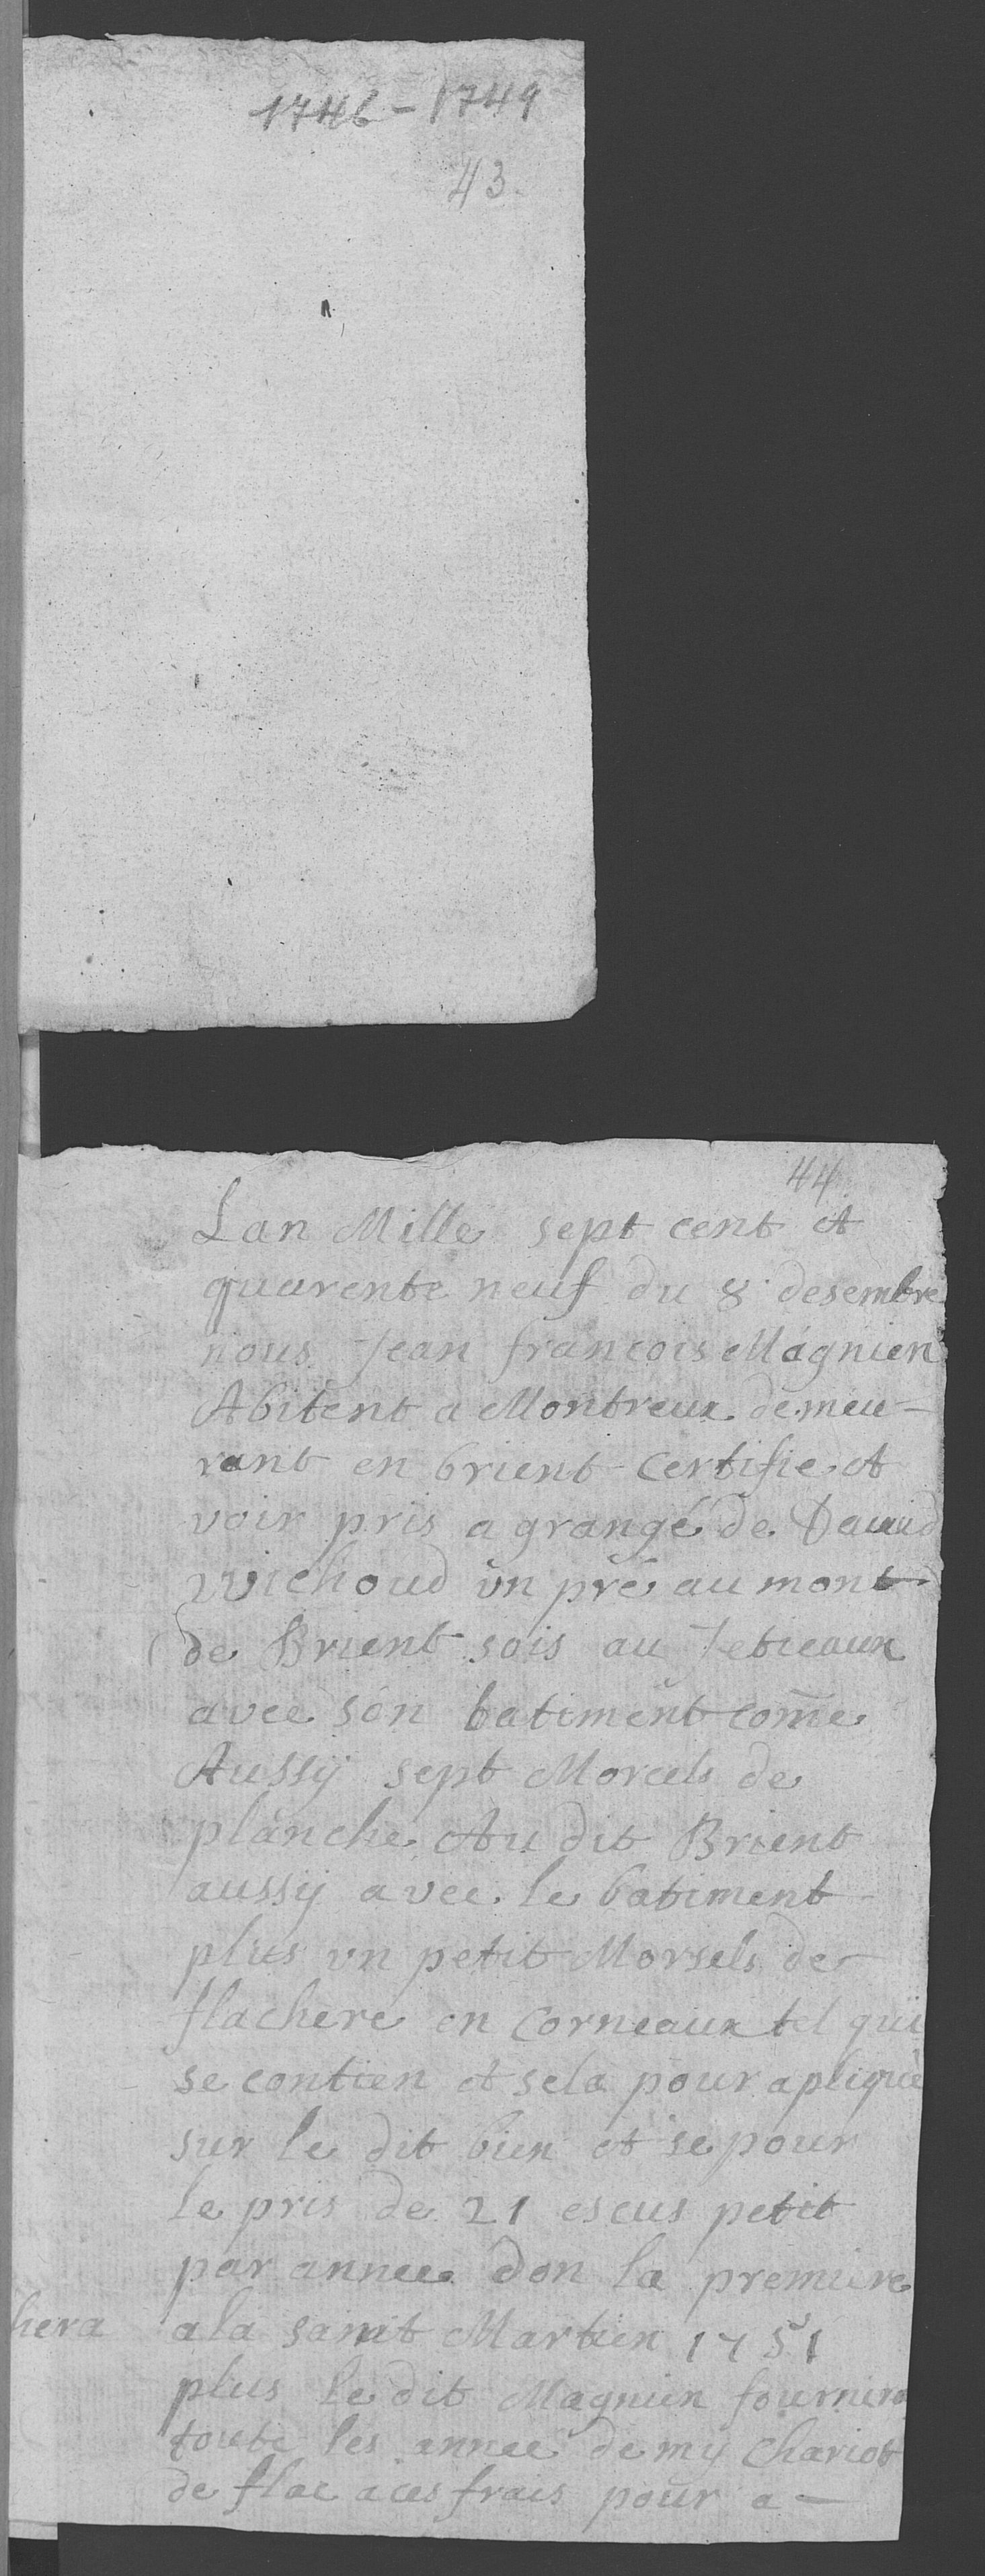 1746 - 1749
43
44
Lan Mille sept cent et
quarente neuf du 8 desembre
nous Jean francois Magnien
Abitent a Montreux demeu-
rant en brient certifie A
voir pris a grangé de David
vvichoud un pré au mont
de Brient sois au Tetreaux
avec son batiment come
Aussÿ sept Morcels de
planche Au dit Brient
aussÿ avec le batiment
plus un petit Morsels de
flachere en Corneaux tel qui
se contien et sela pour apliqué
sur le dit bien et se pour
le pris de 21 escus petit
par annee don la premiere
hera a la saint Martien 1751
plus le dit Magnien fournira
toute les annee demy chariot
de flac a ces frais pour a-